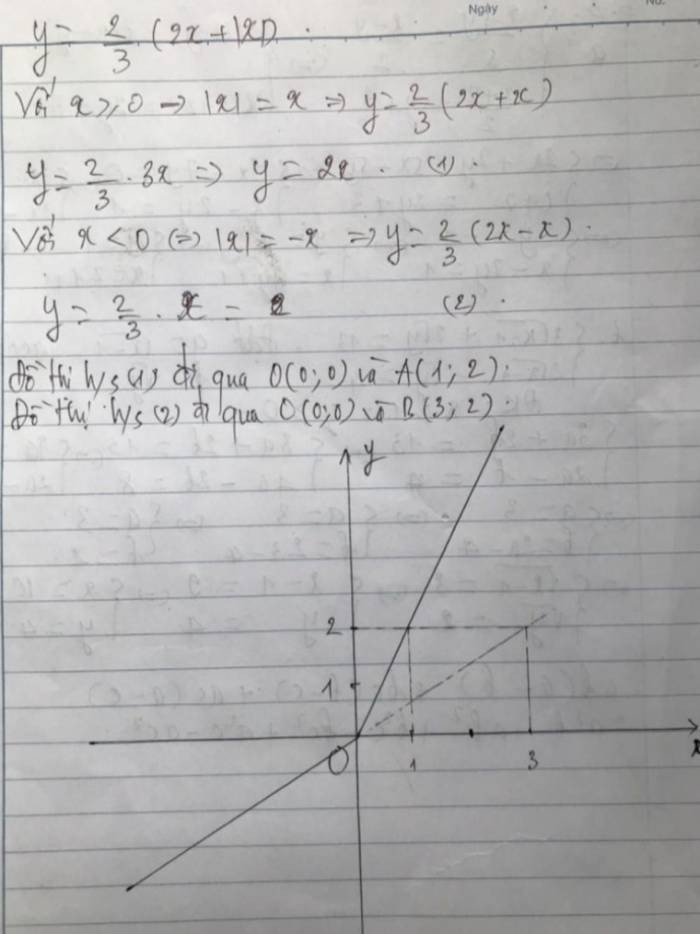 Ngày
No.
y = 2/3 (2x + |x|) .
Với x ≥ 0 → |x| = x ⇒ y = 2/3 (2x + x)
y = 2/3 . 3x ⇒ y = 2x . (1) .
Với x < 0 (⇒ |x| = -x ⇒ y = 2/3 (2x - x) .
y = 2/3 . x = (2) .
Đồ thị h/s (1) đi qua O(0;0) và A(1; 2) .
Đồ thị h/s (2) đi qua O(0;0) và B(3; 2) .
y
2
1
O 1 3 x